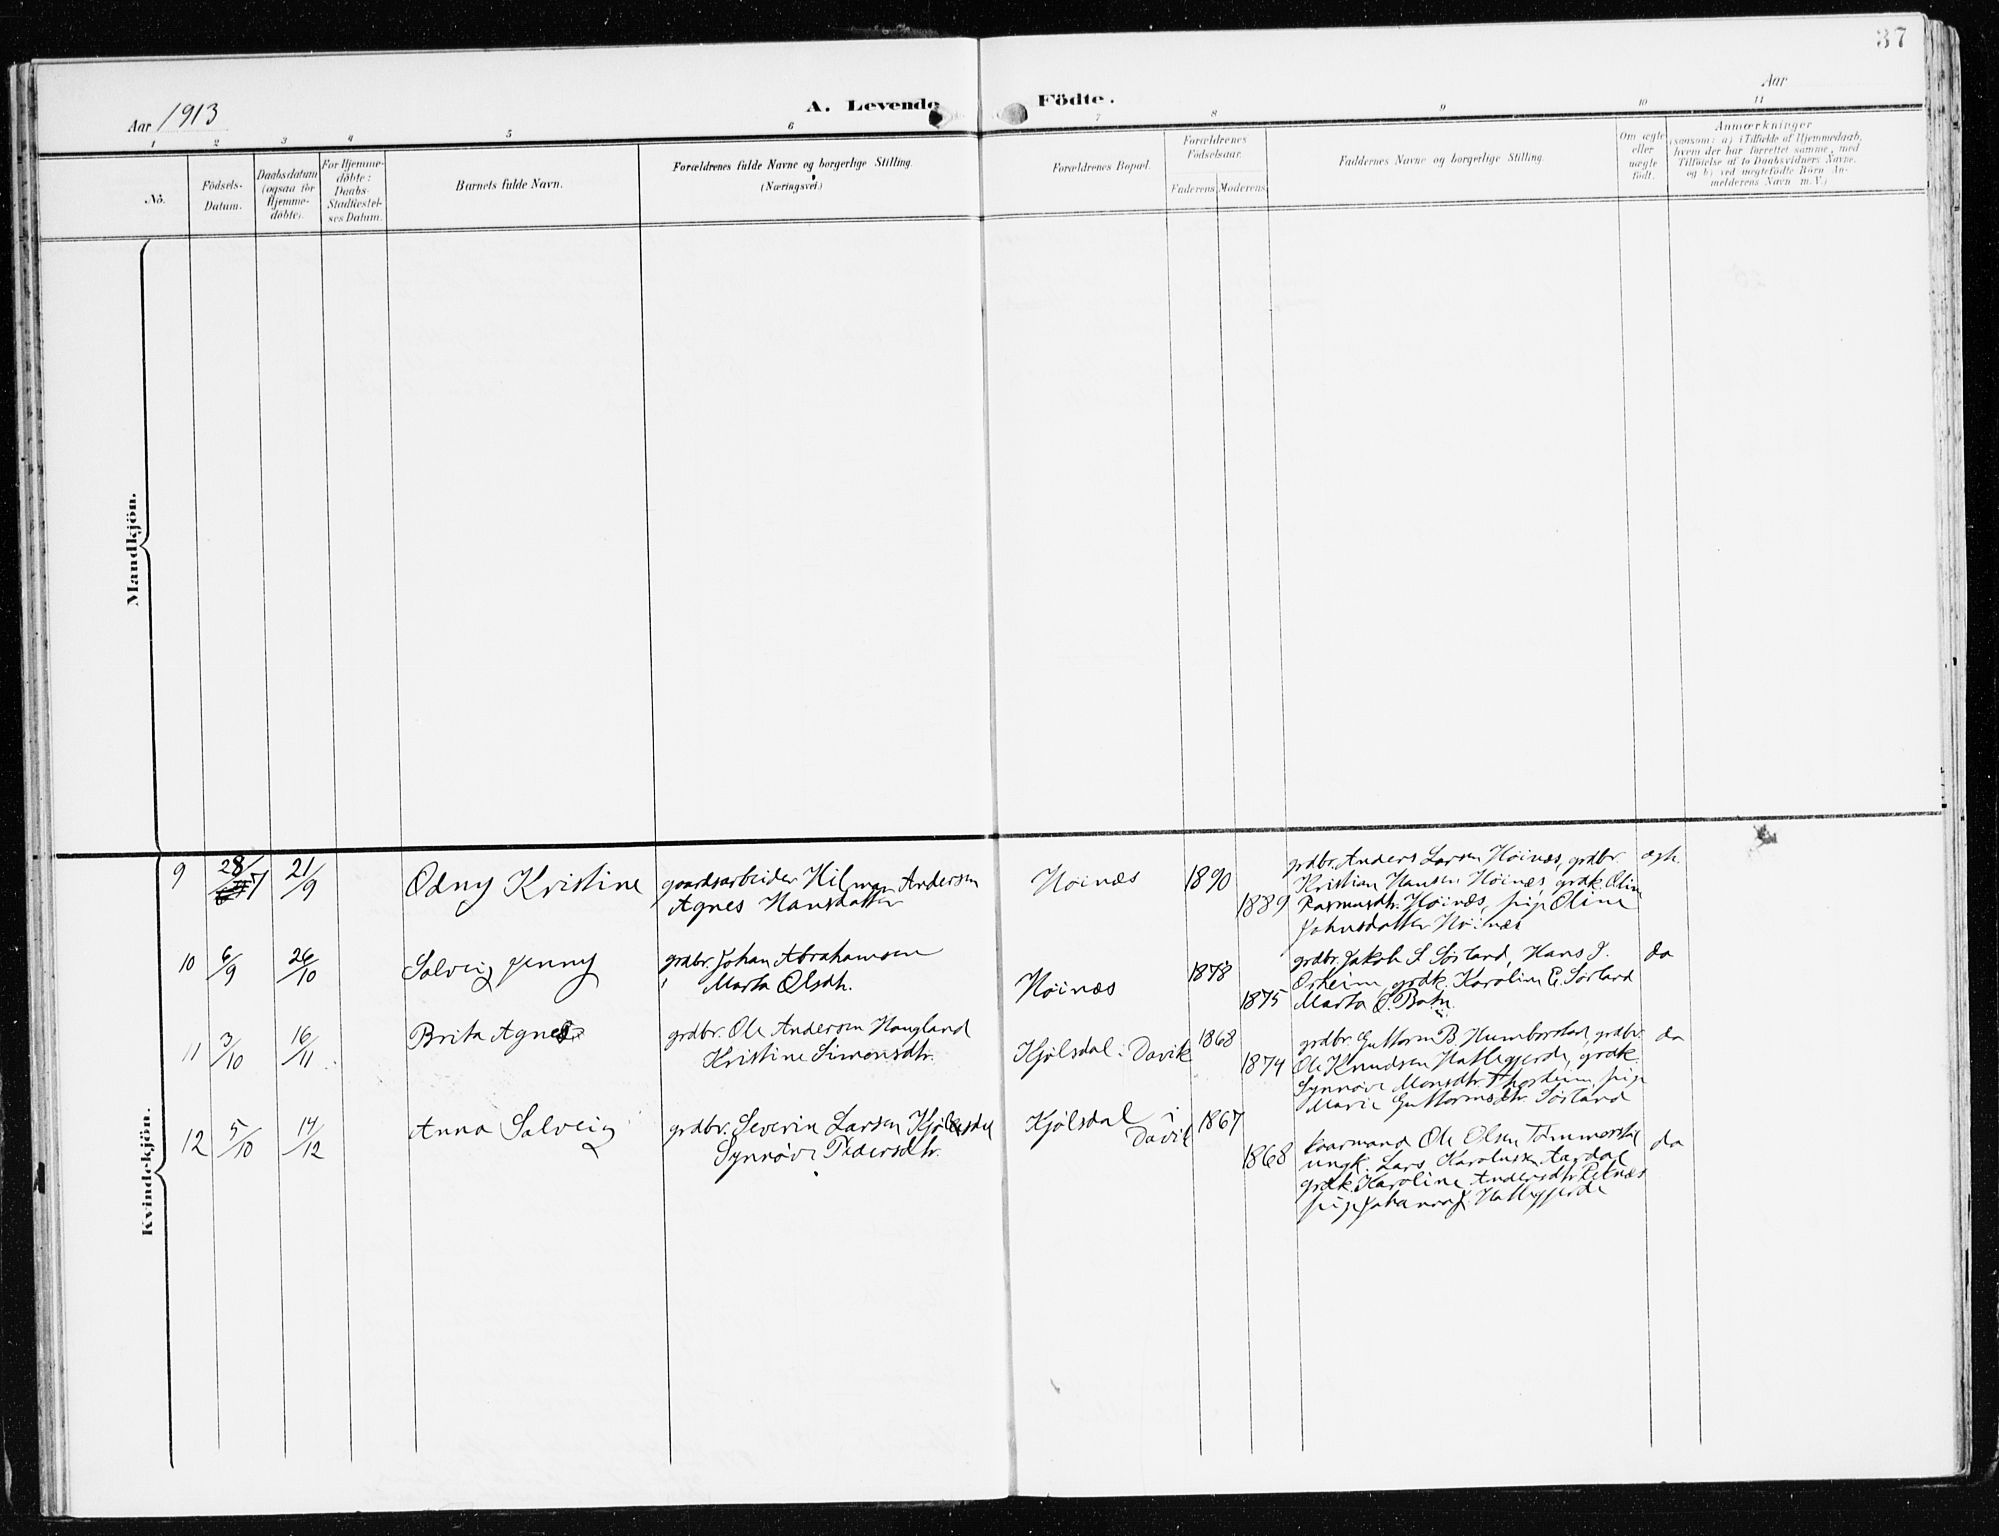 37
Aar 1913
A. Levende Födte.
Aar
1 2 3 4 5 6 7 8 9 10 11
No.
Födsels-
Datum.
Daabsdatum
(ogsaa for
Hjemme-
döbte).
For Hjemme-
döbte:
Daabs-
Stadfæstel-
ses Datum.
Barnets fulde Navn.
Forældrenes fulde Navne og borgerlige Stilling.
(Næringsvei.)
Forældrenes Bopæl.
Forældrenes
Födselsaar.
Faderens Moderens
Faddernes Navne og borgerlige Stilling.
Om ægte
eller
uægte
födt.
Anmærkninger
(saasom: a) i Tilfælde af Hjemmedaab,
hvem der har forrettet samme, med
Tilföielse af to Daabsvidners Navne,
og b) ved uægtefödte Börn An-
melderens Navn m. V.)
Mandkjön.
Kvindekjön.
9 28/7 21/9 Odny Kristine
gaardsarbeider Hilmar Andersen
Agnes Hansdatter
Höinæs 1890
1889
grdbr. Anders Larsen Höinæs, grdbr.
Kristian Hansen Höinæs, grdk. Oline
Rasmusdtr. Höinæs, pige Oline
Johnsdatter Höinæs
ægte.
10 6/9 26/10 Solveig Jenny
grdbr. Johan Abrahamsen
Marta Olsdtr.
Höinæs
1878
1875
grdbr. Jakob S Sörland, Hans J.
Osheim, grdk. Karolin E. Sörland
Marta O. Botn
do
11 3/10 16/11 Brita Agnes
grdbr. Ole Andersen Haugland
Kristine Simonsdtr.
Kjölsdal i Davik
1868
1874
grdbr. Guttorm B. Humborstad, grdbr.
Ole Knudsen Hattegjerde, grdk.
Synnöve Monsdtr. Thorheim, pige
Marie Guttormsdtr. Sörland
do
12 5/10 14/12 Anna Solveig
grdbr. Severin Larsen Kjölsdal
Synnöve Pedersdtr.
Kjölsdal i
Davik
1867
1868
kaarmand Ole Olsen
ungk. Lars Karolusen Aardal
grdk. Karoline Andersdtr. Reknæs
pige Johanna J. Hattegjerde
do